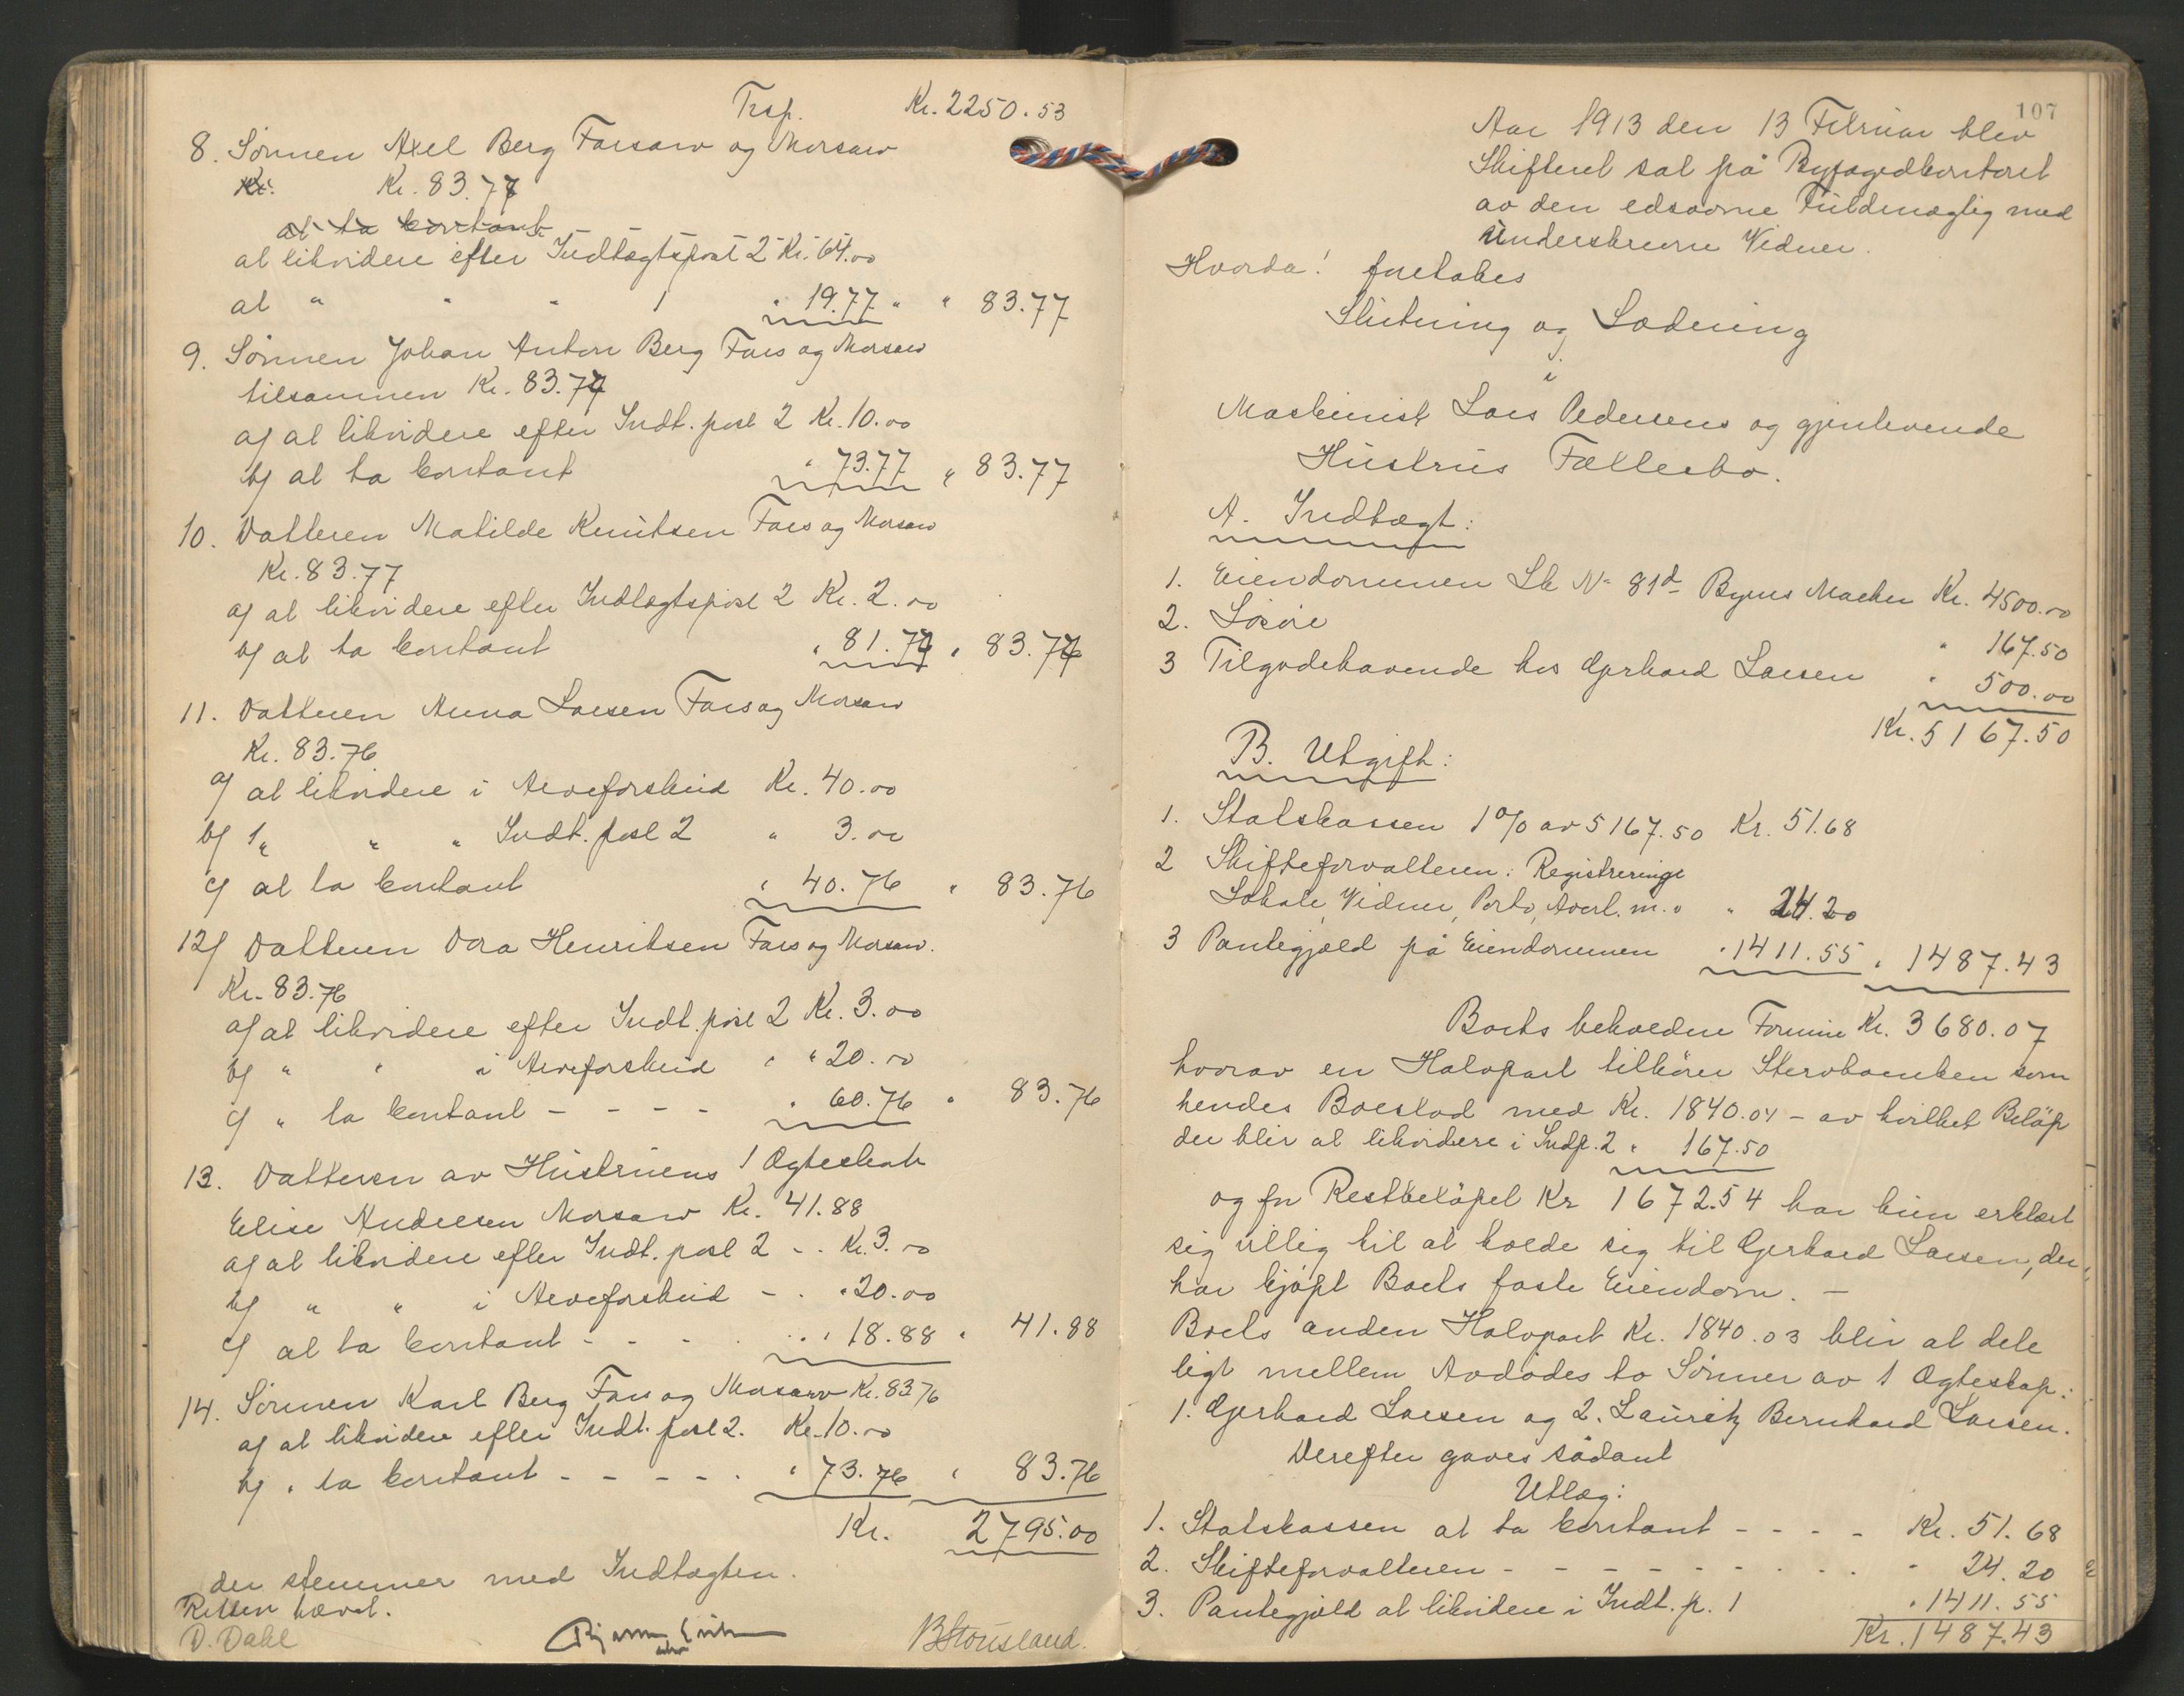 Trsp. Kr. 2250.53
8. Sønnen Axel Berg Farsarv og Morsarv
Kr. Kr. 83.77
at ta kontant
at likvidere efter Indtægtspost 2 Kr. 64.00
at " " " 1 " 19.77 " " 83.77
9. Sønnen Johan Anton Berg Fars og Morsarv
tilsammen Kr. 83.77
a/ at likvidere efter Indt. post 2 Kr. 10.00
b/ at ta kontant " 73.77 " 83.77
10. Datteren Matilde Knutsen Fars og Morsarv
Kr. 83.77
a/ at likvidere efter Indtægtspost 2 Kr. 2.00
b/ at ta kontant " 81.77 " 83.77
11. Datteren Anna Larsen Fars og Morsarv
Kr. 83.76
a/ at likvidere i Arveforskud Kr. 40.00
b/ " " " Indt. post 2 " 3.00
c/ at ta kontant " 40.76 " 83.76
12/ Datteren Dora Henriksen Fars og Morsarv.
Kr. 83.76
a/ at likvidere efter Indt. post 2 Kr. 3.00
b/ " " i Arveforskud " " 20.00
c/ " ta kontant - - - - " 60.76 " 83.76
13. Datteren av Hustruens 1 Ægteskab
Elise Andersen Morsarv Kr. 41.88
a/ at likvidere efter Indt. post 2 - . Kr. 3.00
b/ " " i Arveforskud - . " 20.00
c/ at ta kontant - - - . . " 18.88 " 41.88
14. Sønnen Karl Berg Fars og Morsarv Kr. 83.76
a/ at likvidere efter Indt. post 2. Kr. 10.00
b/ " ta kontant - - - - . " 73.76 " 83.76
Kr. 2795.00
der stemmer med Indtægten.
Retten hævet.
D. Dahl B Stousland.
107
Aar 1913 den 13 Februar blev
Skifteret sat på Byfogedkontoret
av den edsvorne Fuldmægtig med
Underskrevne Vidner.
Hvorda! foretokes
Slutning og Lodning
i
Maskinist Lars Pedersens og gjenlevende
Hustrus Fællesbo.
A. Indtægt:
1. Eiendommen Lb No 81d Byens Marker Kr. 4500.00
2. Løsøre " 167.50
3 Tilgodehavende hos Gerhard Larsen " 500.00
Kr. 5167.50
B. Utgift:
1. Statskassen 1% av 5167.50 Kr. 51.68
2 Skifteforvalteren: Registrering
Lokale, Vidner, Porto, Avert. m. v " 24.20
3 Pantegjæld på Eiendommen " 1411.55 " 1487.43
Boets beholdne Formue Kr. 3680.07
hvorav en Halvpart tilhører Stervboenken som
hendes Boeslod med Kr. 1840.04 - av hvilket Beløp
der blir at likvidere i Indp. 2 " 167.50
og for Restbeløpet Kr 1672.54 har hun erklært
sig villig til at holde sig til Gerhard Larsen, der
har kjøpt Boets faste Eiendom. -
Boets anden Halvpart Kr. 1840.03 blir at dele
ligt mellem Avdødes to Sønner av 1 Ægteskap:
1. Gerhard Larsen og 2. Lauritz Bernhard Larsen.
Derefter gaves sådant
Utlæg:
1. Statskassen at ta kontant - - - - Kr. 51.68
2. Skifteforvalteren - - - - - - . . . " 24.20
3. Pantegjæld at likvidere i Indt. p. 1 " 1411.55
Kr. 1487.43